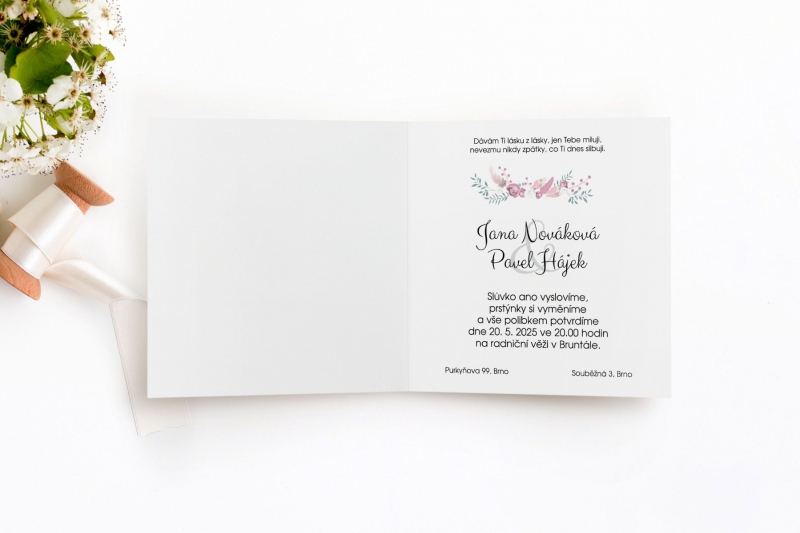 Dávám Ti lásku z lásky, jen Tebe miluji,
nevezmu nikdy zpátky, co Ti dnes slibuji.
Jana Nováková
&
Pavel Hájek
Slůvko ano vyslovíme,
prstýnky si vyměníme
a vše polibkem potvrdíme
dne 20. 5. 2025 ve 20.00 hodin
na radniční věži v Bruntále.
Purkyňova 99, Brno
Souběžná 3, Brno